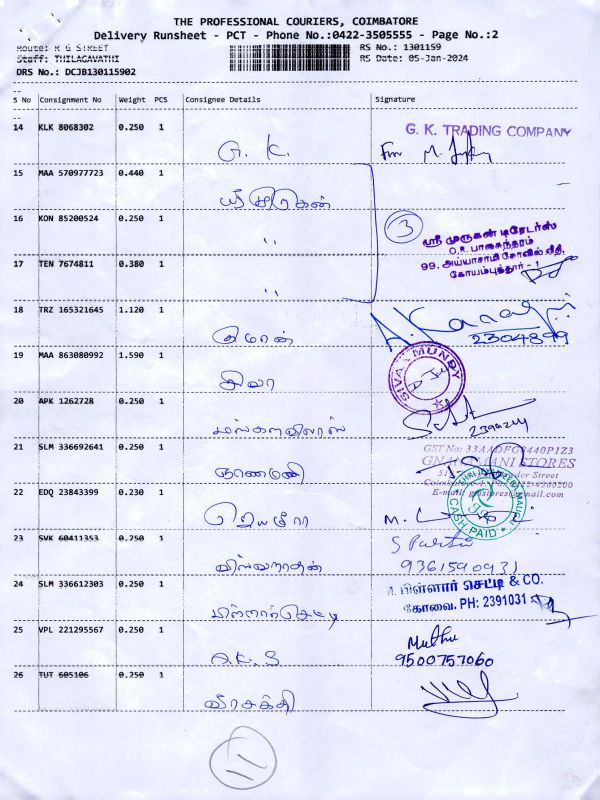 THE PROFESSIONAL COURIERS, COIMBATORE
Delivery Runsheet - PCT - Phone No.:0422-3505555 - Page No.:2
Route: R G STREET RS No.: 1301159
Staff: THILAGAVATHI RS Date: 05-Jan-2024
DRS No.: DCJB130115902
S No Consignment No Weight PCS Consignee Details Signature
14 KLK 8068302 0.250 1 G. K. G. K. TRADING COMPANY
For M.
15 MAA 570977723 0.440 1 ஸ்ரீ முருகன்
16 KON 85200524 0.250 1 " 3 ஸ்ரீ முருகன் டிரேடர்ஸ்
99, அய்யாசாமி கோவில் வீதி,
17 TEN 7674811 0.380 1 " கோயம்புத்தூர் - 1
18 TRZ 165321645 1.120 1 A. Kanaga
2304899
19 MAA 863080992 1.590 1 சிவா SIVA MUNDY
20 APK 1262728 0.250 1 மங்களவிலாஸ்
21 SLM 336692641 0.250 1 ஞானமணி GNANAMANI STORES
22 EDQ 23843399 0.230 1 ஜெயஸ்ரீ CASH PAID
23 SVK 60411353 0.250 1 விஸ்வநாதன் 9361590931
24 SLM 336612303 0.250 1 M. பிள்ளார் செட்டி & CO.
கோவை. PH: 2391031
25 VPL 221295567 0.250 1 A.K.S Muthu
9500757060
26 TUT 605106 0.250 1 வீரசக்தி
11